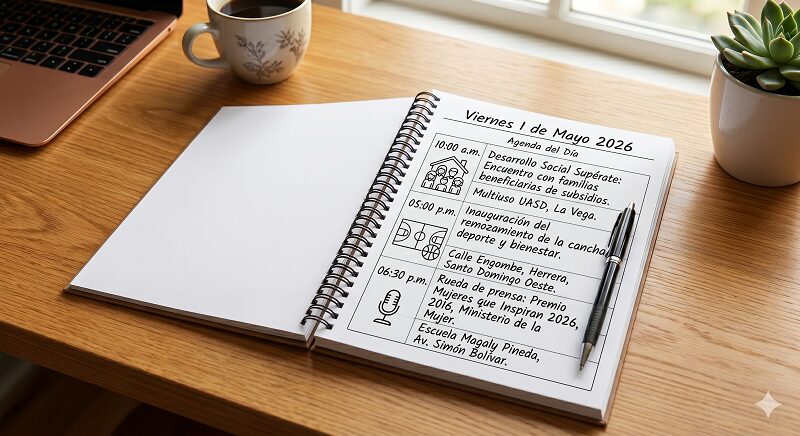 Viernes 1 de Mayo 2026
Agenda del Día
10:00 a.m.
Desarrollo Social Supérate:
Encuentro con familias
beneficiarias de subsidios.
Multiuso UASD, La Vega.
05:00 p.m.
Inauguración del
remozamiento de la cancha,
deporte y bienestar.
Calle Engombe, Herrera,
Santo Domingo Oeste.
06:30 p.m.
Rueda de prensa: Premio
Mujeres que Inspiran 2026,
2016, Ministerio de la
Mujer.
Escuela Magaly Pineda,
Av. Simón Bolívar.